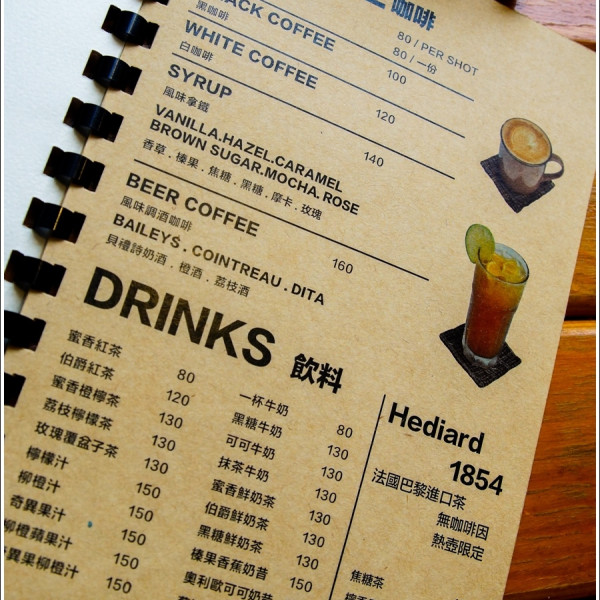 咖啡
80 / PER SHOT
80 / 一份
BLACK COFFEE
黑咖啡
100
WHITE COFFEE
白咖啡
120
SYRUP
風味拿鐵
140
VANILLA.HAZEL.CARAMEL
BROWN SUGAR.MOCHA.ROSE
香草.榛果.焦糖.黑糖.摩卡.玫瑰
BEER COFFEE
風味調酒咖啡
160
BAILEYS.COINTREAU.DITA
貝禮詩奶酒.橙酒.荔枝酒
DRINKS 飲料
蜜香紅茶 80
伯爵紅茶 120
蜜香橙檸茶 130
荔枝檸檬茶 130
玫瑰覆盆子茶 130
檸檬汁 150
柳橙汁 150
奇異果汁 150
柳橙蘋果汁 150
奇異果柳橙汁
一杯牛奶 80
黑糖牛奶 130
可可牛奶 130
抹茶牛奶 130
蜜香鮮奶茶 130
伯爵鮮奶茶 130
黑糖鮮奶茶 130
榛果香蕉奶昔 150
奧利歐可可奶昔
Hediard
1854
法國巴黎進口茶
無咖啡因
熱壺限定
焦糖茶